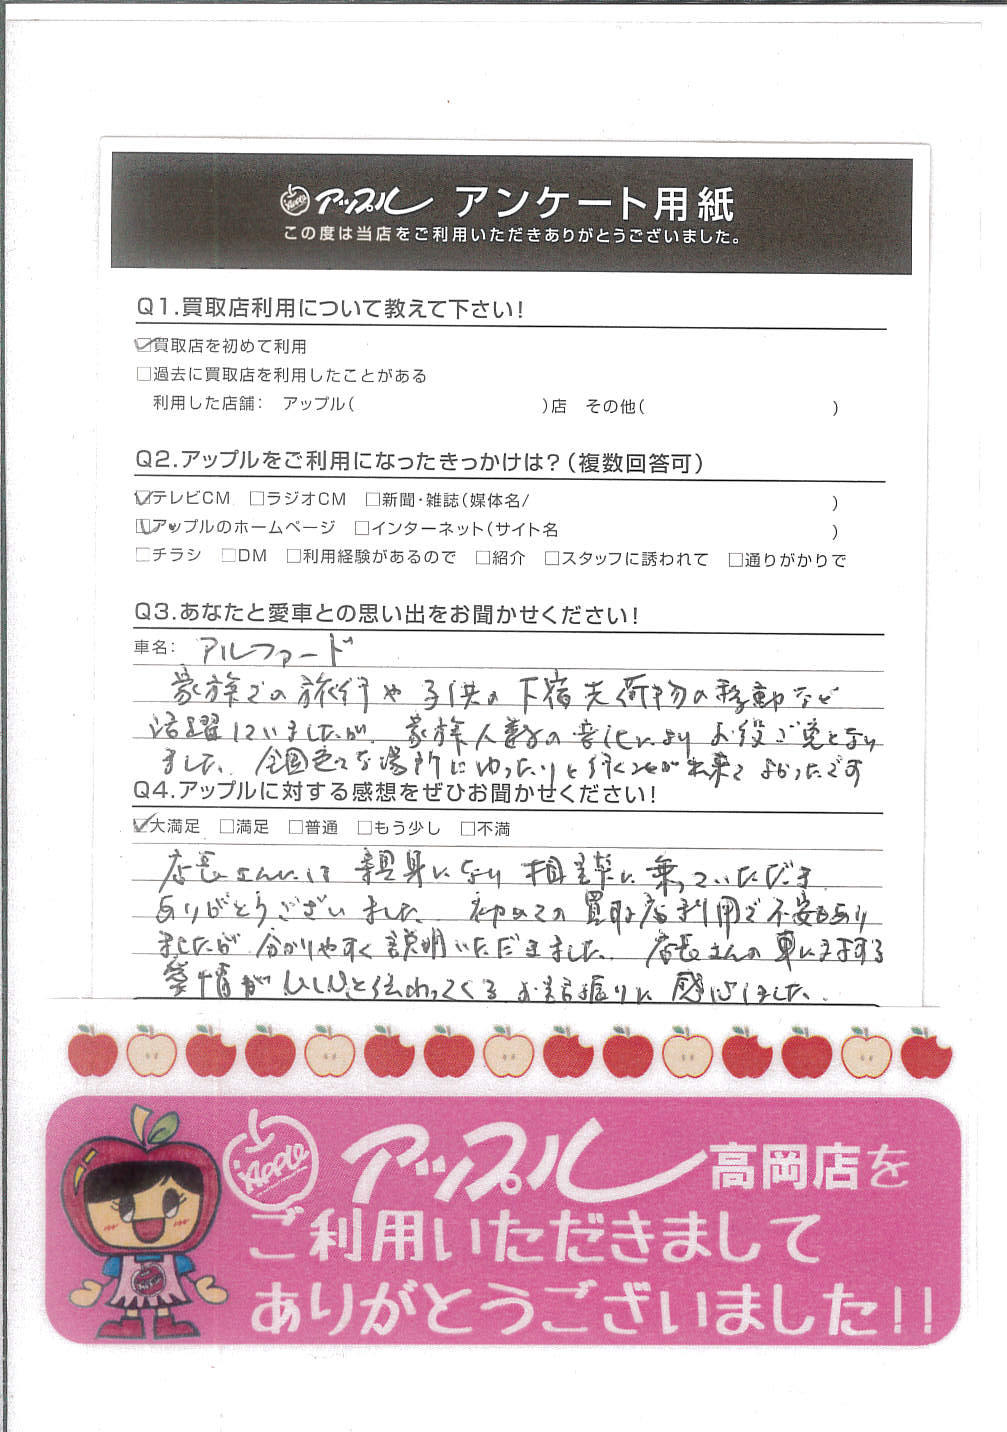 Apple アップル アンケート用紙
この度は当店をご利用いただきありがとうございました。
Q1.買取店利用について教えて下さい!
☑買取店を初めて利用
□過去に買取店を利用したことがある
利用した店舗: アップル( )店 その他( )
Q2.アップルをご利用になったきっかけは?(複数回答可)
☑テレビCM □ラジオCM □新聞・雑誌(媒体名/ )
☑アップルのホームページ □インターネット(サイト名 )
□チラシ □DM □利用経験があるので □紹介 □スタッフに誘われて □通りがかりで
Q3.あなたと愛車との思い出をお聞かせください!
車名: アルファード
家族での旅行や子供の下宿先荷物の移動など
活躍していましたが、家族人数の変化によりお役ご免となり
ました。全国色々な場所にゆったりと行くことが出来てよかったです
Q4.アップルに対する感想をぜひお聞かせください!
☑大満足 □満足 □普通 □もう少し □不満
店長さんには親身になり相談に乗っていただき
ありがとうございました。初めての買取店利用で不安もあり
ましたが分かりやすく説明いただきました。店長さんの車に対する
愛情がひしひしと伝わってくるお話振りに感心しました。
Apple アップル 高岡店を
ご利用いただきまして
ありがとうございました!!